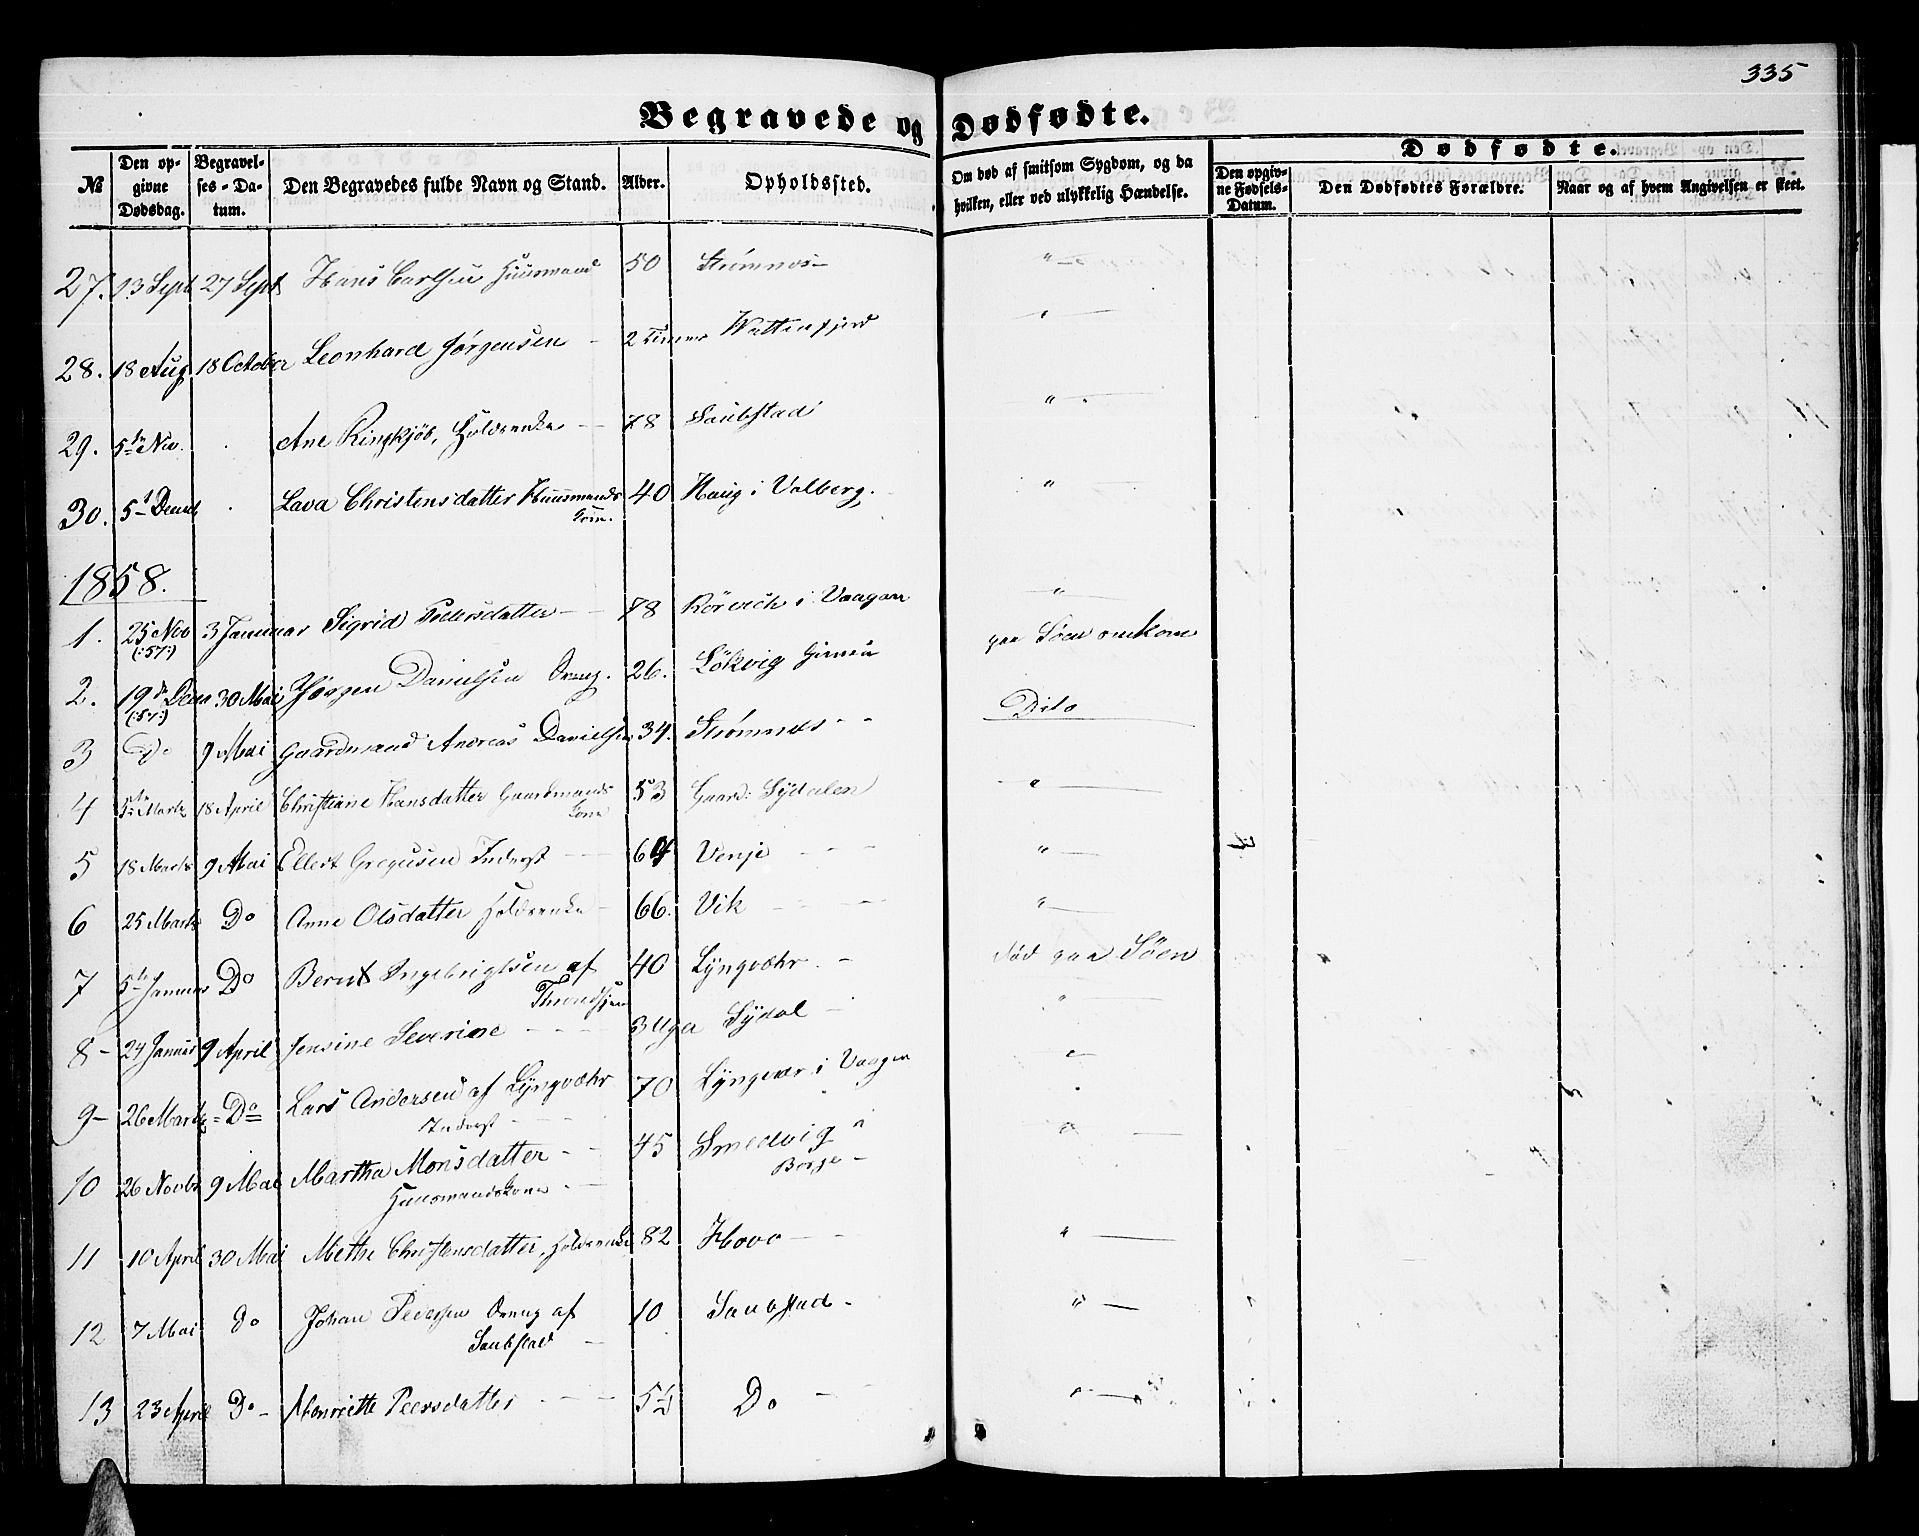 335
Begravede og Dødfødte.
№ Den opgivne Dødsdag. Begravelses-Datum. Den Begravedes fulde Navn og Stand. Alder. Opholdssted. Om død af smitsom Sygdom, og da hvilken, eller ved ulykkelig Hændelse. Dødfødte.
Den opgivne Fødsels-Datum. Den Dødfødtes Forældre. Naar og af hvem Angivelsen er skeet.
27. 13 Sept 27 Sept Hans Carlsen Huusmand 50 Strømnes - "
28. 18 Aug 18 October Leonhard Jørgensen - 2 Timer Watterfjord "
29. 5te Nov. Ane Ringkjøb, Holdsenke - 78 Saubstad "
30. 5te Decmb Lava Christensdatter Huusmands 40 Haug i Valberg. "
Kone.
1858.
1. 25 Nov 3 Januar Sigrid Pedersdatter - 78 Rörvich i Vaagan "
(:57:)
2. 19de Decm 30 Mai Jørgen Danielsen Dreng. 26. Lökvig Gimsö paa Søen omkom
(:57:)
3 Do 9 Mai Gaardmand Andreas Danielsen 34. Strømnes - - Dito
4 5te Marts 18 April Christiane Hansdatter Gaardmands 53 Gaard: Sydalen "
Kone
5 18 Marts 9 Mai Ellert Gregusen Inderst - - 64 Venje - - - "
6 25 Marts Do Anne Olsdatter Holdsenke - 66. Vik - - - "
7 5te Januar Do Bernt Ingebrigtsen af 40 Lyngvæhr. - død paa Søen
Throndhjem
8 - 24 Januar 9 April Jensine Severine - - - 3 Uger Sydal - "
9 - 26 Marts = Do = Lars Andersen af Lyngvæhr 70 Lyngvær i Vaagen "
Inderst - - -
10 26 Novbr 9 Mai Martha Monsdatter - - 45 Smedvig " "
Huusmandskone - - Borge -
11 10 April 30 Mai Methe Christensdatter, Holdsenke 82 Hovo - - "
12 7 Mai Do Johan Pedersen Dreng af 10 Saubstad - " -
Saubstad -
13 23 April Do - Henriette Peersdatter - - - 5½ Do - - " -